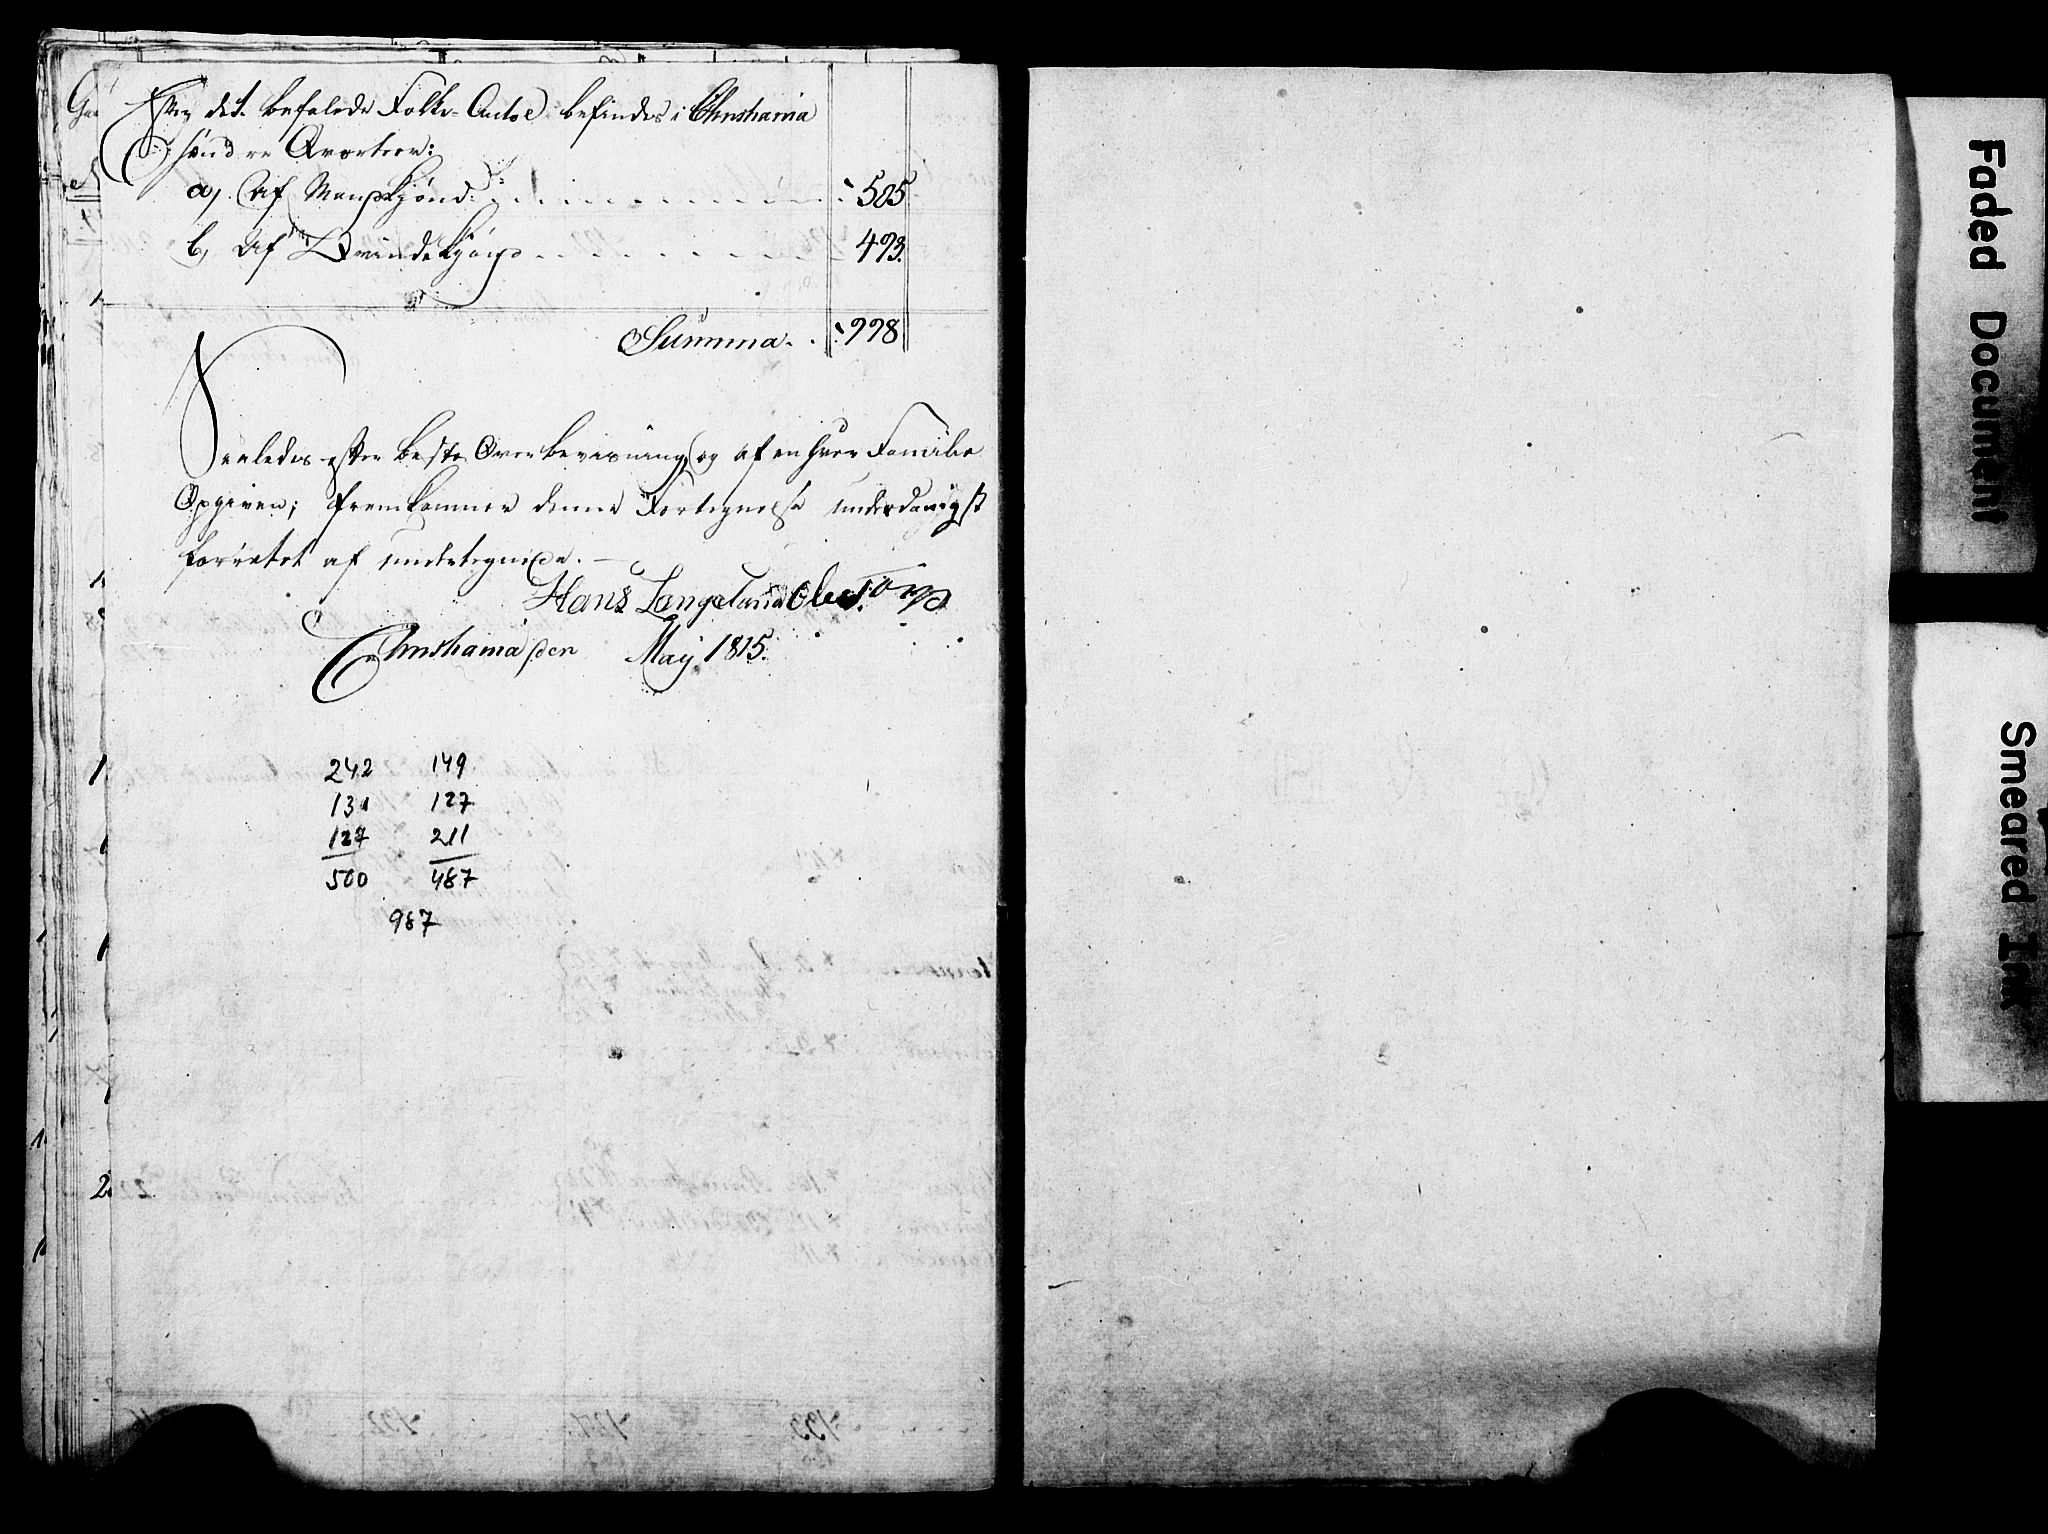 Efter det befalede Folke-Antal befindes i Christiania
søndre Qvarteer:
a, Af Mandkjønd . . . . . 505
b, Af Qvindekjønd . . . . . 493.
Summa . . 998
Saaledes efter beste Overbeviisning og af en hver Familie
Opgiven; fremkommer denne Fortegnelse underdanigst
forrettet af undertegnede. —
Hans Langeland Olesøn
Christiania den May 1815.
242 149
131 127
127 211
500 487
987
Faded Document
Smeared Ink